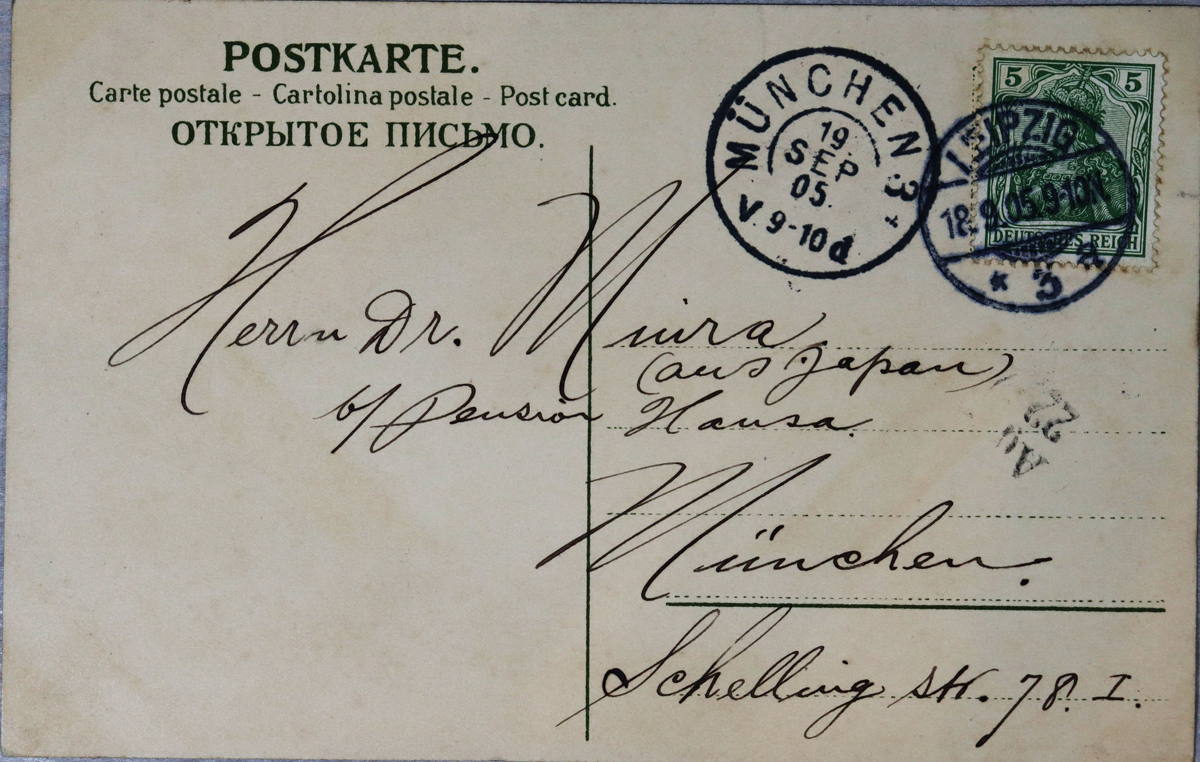 POSTKARTE.
Carte postale - Cartolina postale - Post card.
ОТКРЫТОЕ ПИСЬМО.
MÜNCHEN 3
19
SEP
05.
V. 9-10 d
5 5
DEUTSCHES REICH
LEIPZIG
18.9.05.9-10N
* 3
Herrn Dr. Miura
(aus Japan)
b/ Pension Hansa.
22
München.
Schelling str. 78. I.